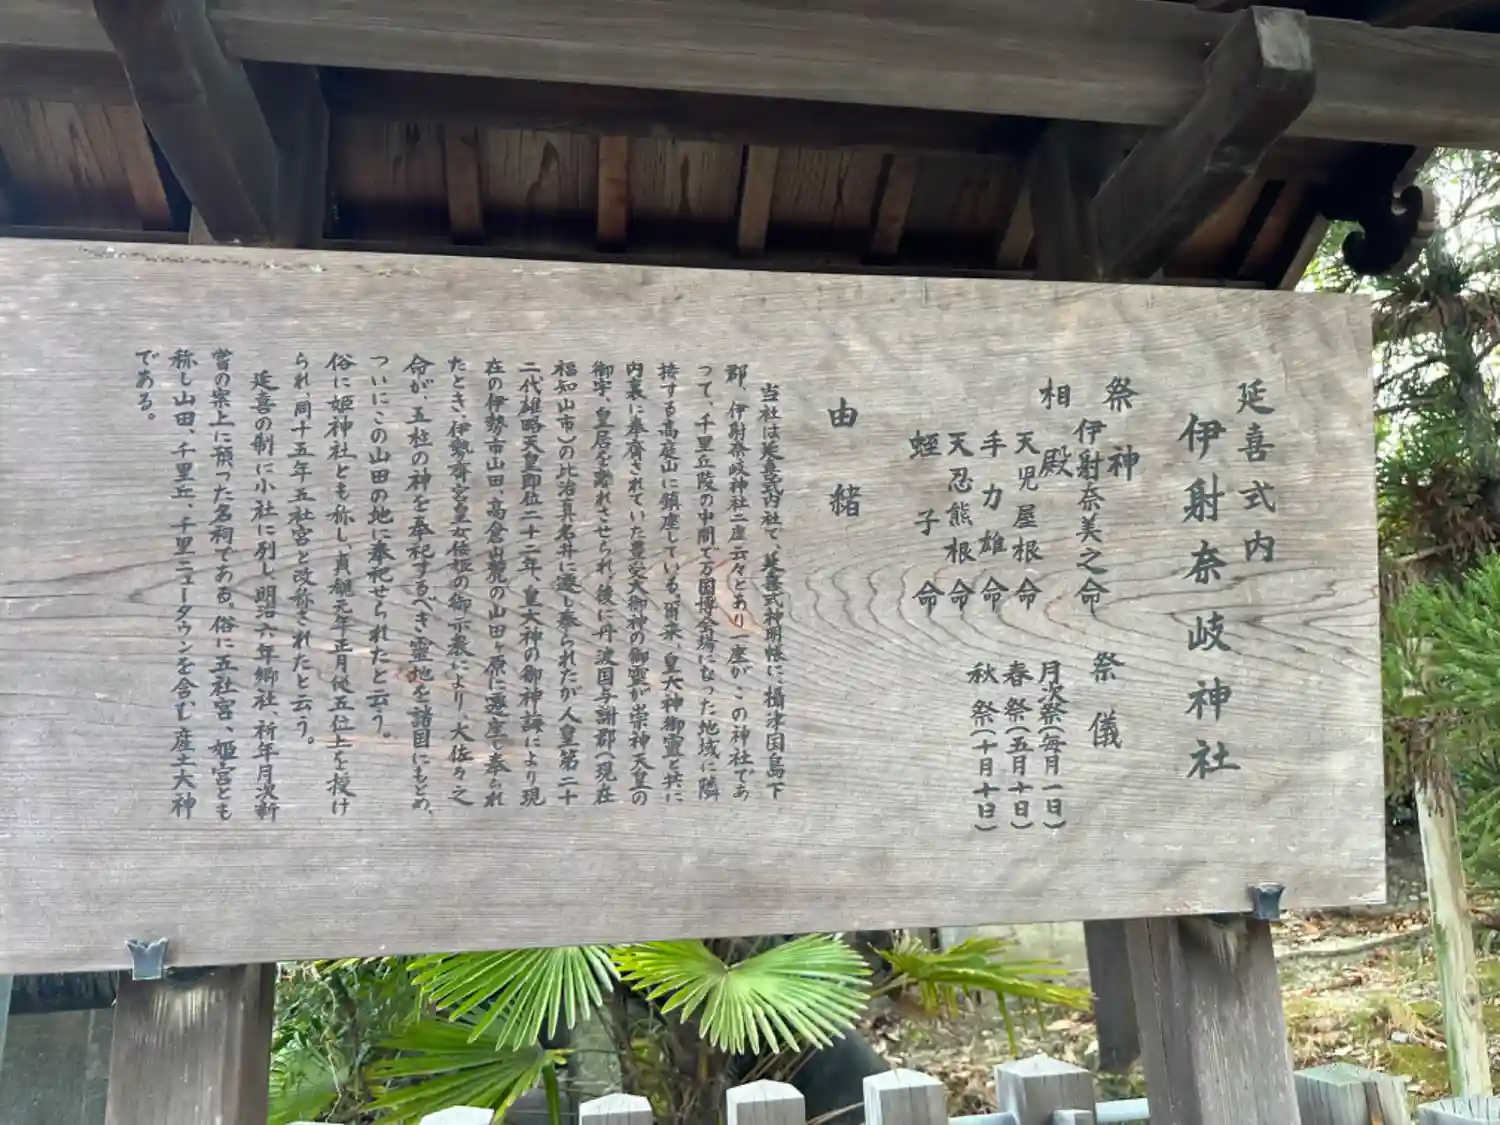 延喜式内
伊射奈岐神社
祭神
伊射奈美之命
相殿
天児屋根命
手力雄命
天忍熊根命
蛭子命
祭儀
月次祭(毎月一日)
春祭(五月十日)
秋祭(十月十日)
由緒
当社は延喜式内社で、延喜式神明帳に、攝津国島下
郡、伊射奈岐神社二座云々とあり一座が、この神社であ
って、千里丘陵の中間で万国博会場になった地域に隣
接する高庭山に鎮座している。爾来、皇大神御霊と共に
内裏に奉齋されていた豊受大御神の御霊が崇神天皇の
御宇、皇居を離れさせられ、後に丹波国与謝郡(現在
福知山市)の比治真名井に遷し奉られたが人皇第二十
二代雄略天皇即位二十二年、皇大神の御神誨により現
在の伊勢市山田、高倉山麓の山田ヶ原に遷座し奉られ
たとき、伊勢斎宮皇女倭姫の御示教により、大佐々之
命が、五柱の神を奉祀するべき霊地を諸国にもとめ、
ついにこの山田の地に奉祀せられたと云う。
俗に姫神社とも称し、貞観元年正月従五位上を授け
られ、同十五年五社宮と改称されたと云う。
延喜の制に小社に列し、明治六年郷社、祈年月次新
嘗の案上に預った名祠である。俗に五社宮、姫宮とも
称し山田、千里丘、千里ニュータウンを含む産土大神
である。